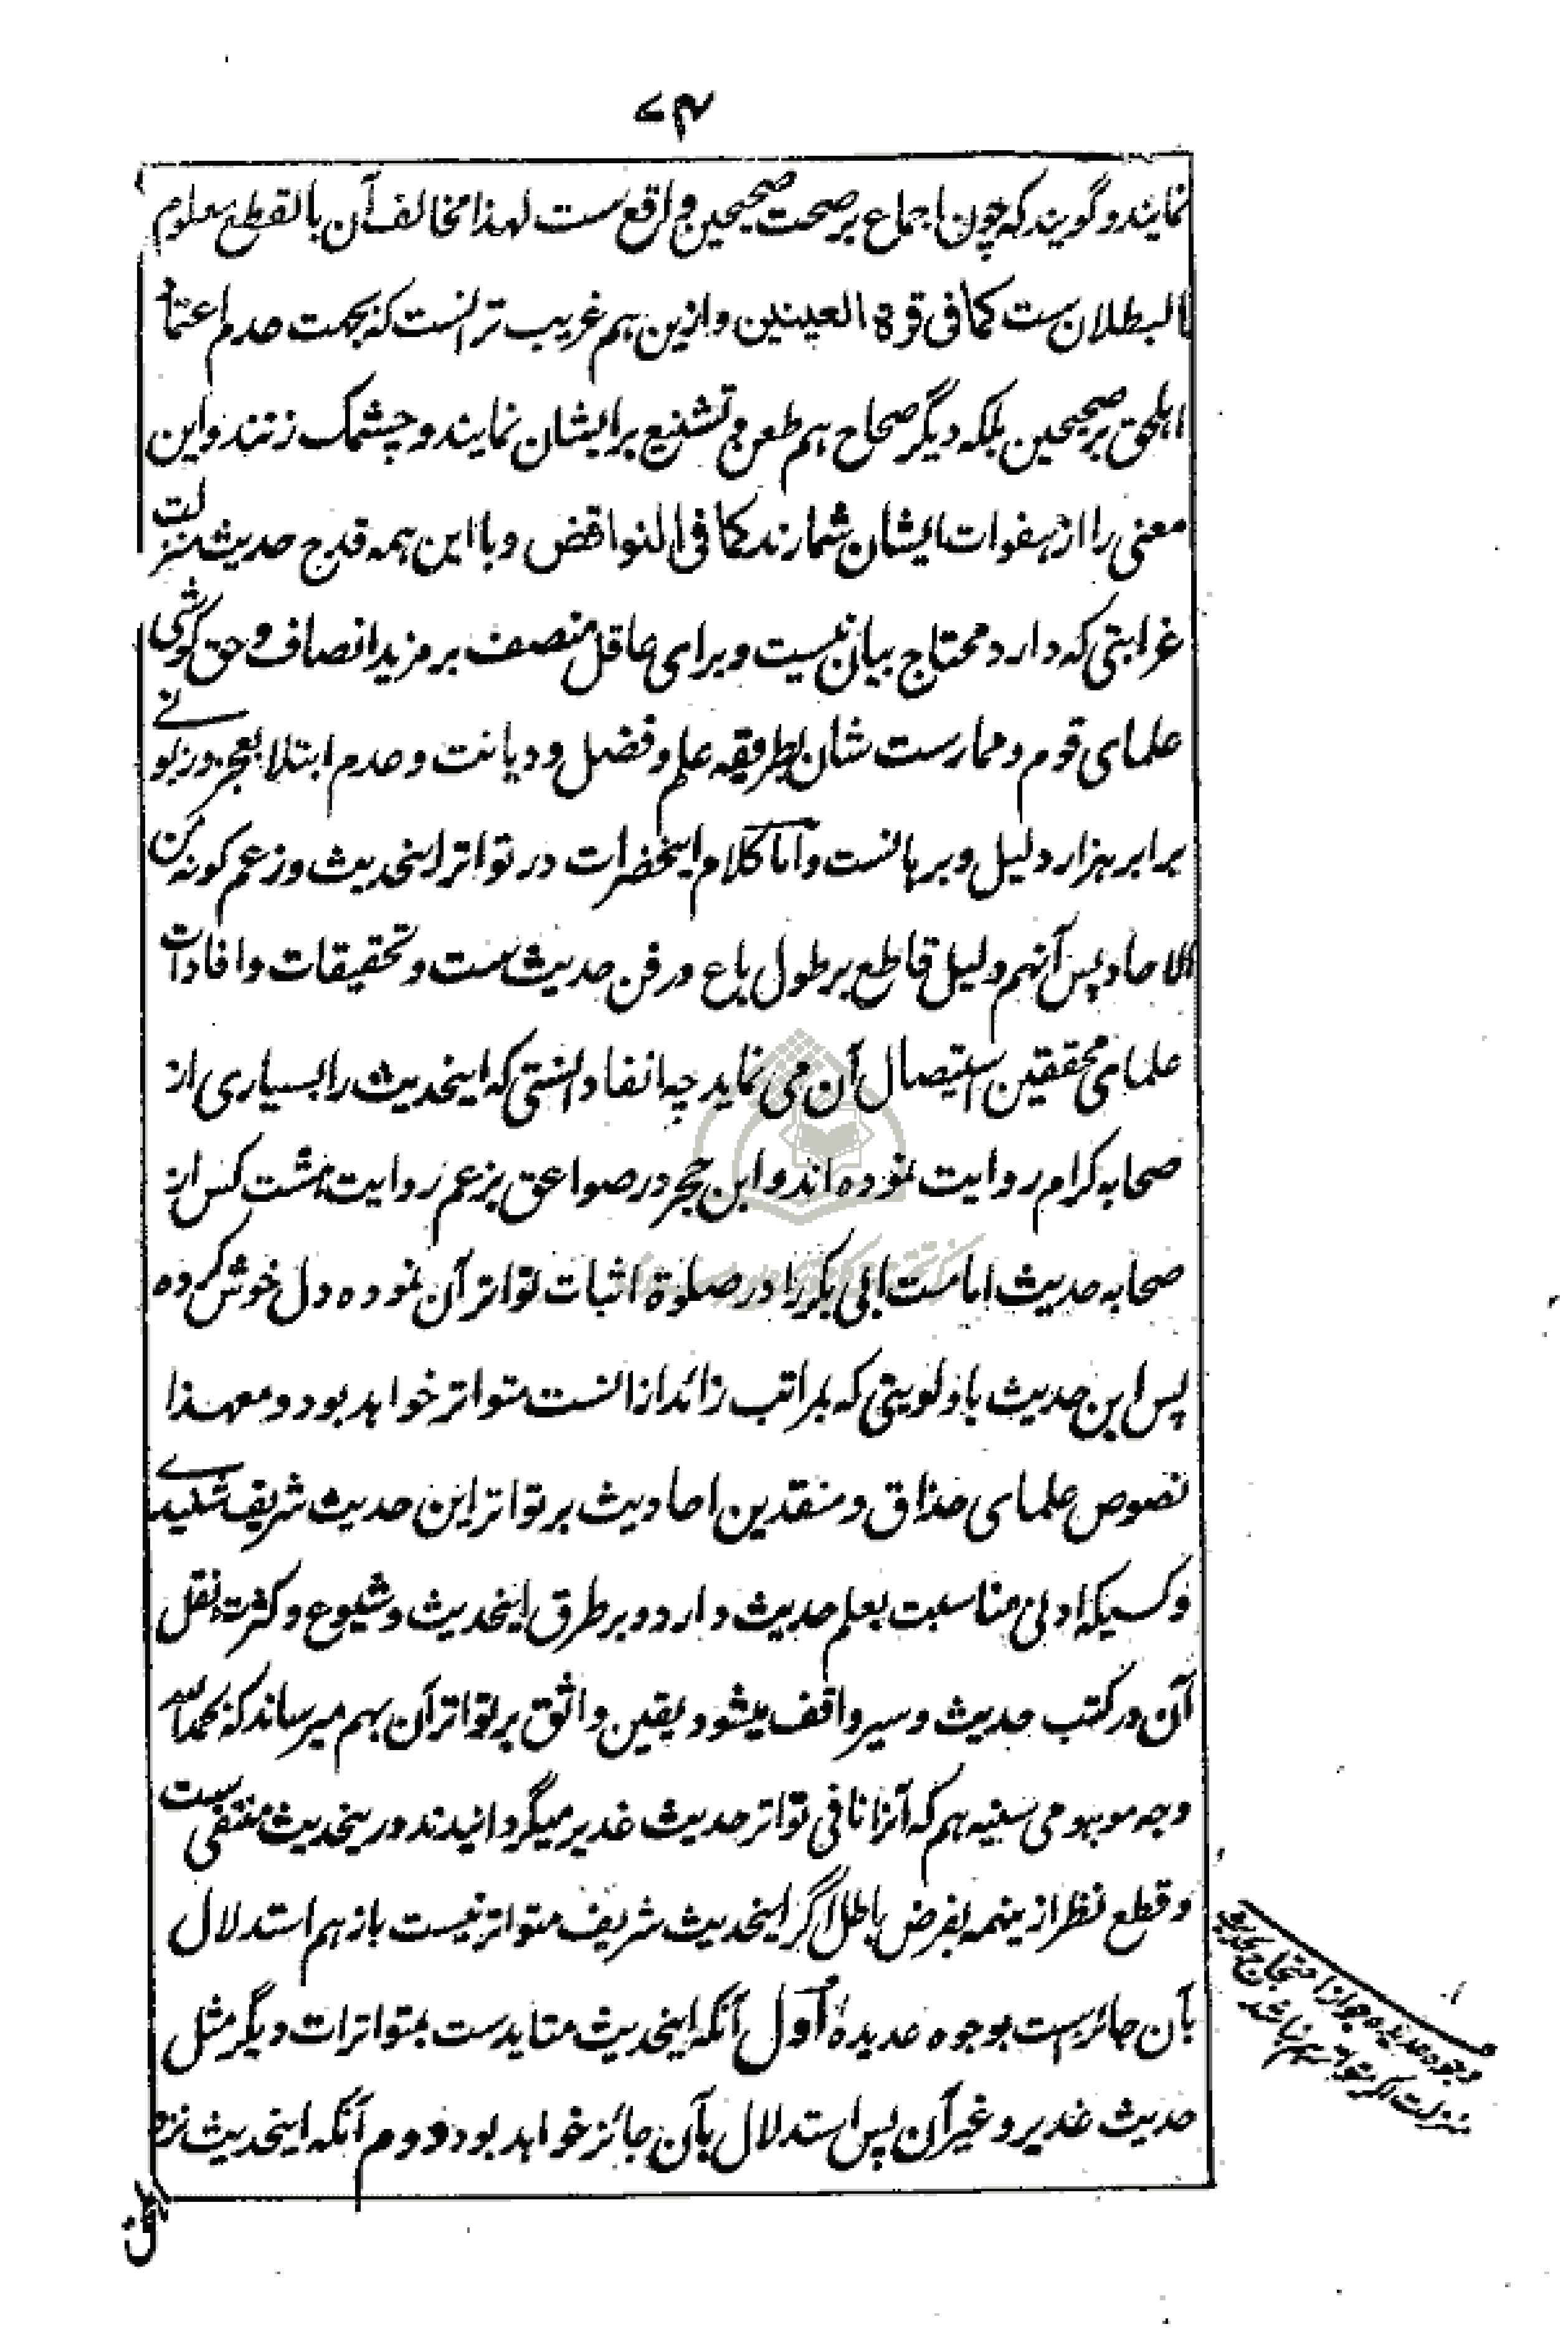 ۷۴
نمایند و گویند که چون اجماع بر صحت صحیحین واقع ست لهذا مخالف آن بالقطع معلوم
البطلان ست کما فی قرة العینین و ازین هم غریب تر انست که بجهت عدم اعتماد
اهلحق بر صحیحین بلکه دیگر صحاح هم طعن و تشنیع بر ایشان نمایند و چشمک زنند و این
معنی را از هفوات ایشان شمارند کما فی النواقض و با این همه قدح حدیث منزلت
غرابتی که دارد محتاج بیان نیست و برای عاقل منصف بر مزید انصاف و حق کوشی
علمای قوم و ممارست شان بطریقه علم و فضل و دیانت و عدم ابتلا بعجز و زبونے
برابر هزار دلیل و برهانست و اما کلام اینحضرات در تواتر اینحدیث و زعم کونه من
الاحاد پس آنهم دلیل قاطع بر طول باع در فن حدیث ست و تحقیقات و افادات
علمای محققین استیصال آن می نماید چه انفا دانستی که اینحدیث را بسیاری از
صحابه کرام روایت نموده اند و ابن حجر در صواعق بزعم روایت هشت کس از
صحابه حدیث امامت ابی بکر را در صلوة اثبات تواتر آن نموده دل خوش کرده
پس این حدیث باولویتی که بمراتب زائد ازانست متواتر خواهد بود و معهذا
نصوص علمای حذاق و منقدین احادیث بر تواتر این حدیث شریف شنیدے
و کسیکه ادنی مناسبت بعلم حدیث دارد و بر طرق اینحدیث و شیوع و کثرت نقل
آن در کتب حدیث و سیر واقف میشود یقین واثق بر تواتر آن بهم میرساند که بحمد الله
وجه موهومی سنیه هم که آنرا نافی تواتر حدیث غدیر میگردانیدند درینحدیث منتفی ست
و قطع نظر ازینهمه بفرض باطل اگر اینحدیث شریف متواتر نیست باز هم استدلال
بآن جائز ست بوجوه عدیده اول آنکه اینحدیث متاید ست بمتواترات دیگر مثل
حدیث غدیر و غیر آن پس استدلال بآن جائز خواهد بود دوم آنکه اینحدیث نزد
وجوه عدیده جواز احتجاج بحدیث
منزلت اگر متواتر هم نباشد